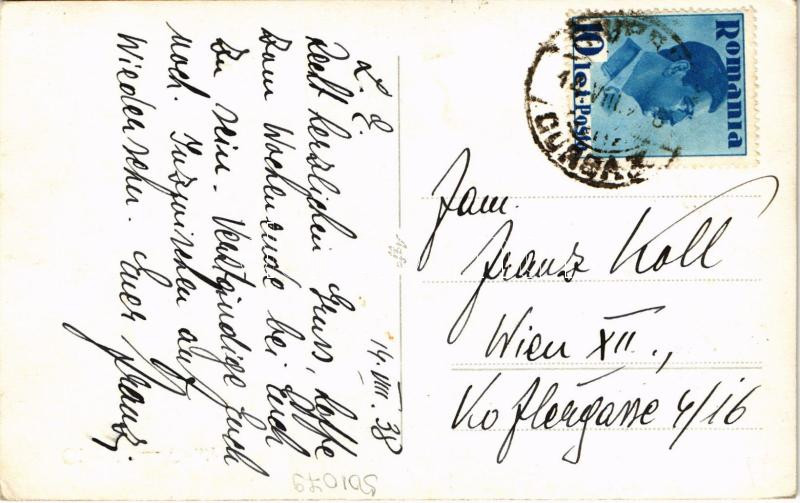 L. E.
Recht herzlichen Gruss, hoffe
zum Wochenende bei Euch
zu sein. Verständige Euch
noch. Inzwischen auf
Wiedersehn. Euer Franz.
14. VIII. 38
Romania
10 lei-Posta
Fam.
Franz Koll
Wien XII.,
Koflergasse 4/16
501079